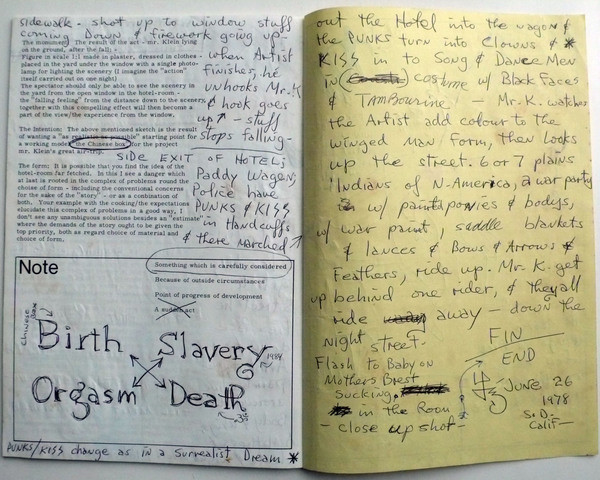 sidewalk - shot up to window stuff
coming Down & firework going up -
The monument: The result of the act - mr. Klein lying
on the ground, after the fall; -
Figure in scale 1:1 made in plaster, dressed in clothes -
placed in the yard under the window with a single photo-
lamp for lighting the scenery (I imagine the "action"
itself carried out one night)
The spectator should only be able to see the scenery in
the yard from the open window in the hotel-room -
the "falling feeling" from the distance down to the scenery,
together with this compelling effect will then become a
part of the view/the experience from the window.
- when Artist
finishes, he
unhooks Mr. K
& hook goes
up - stuff
stops falling -
The Intention: The above mentioned sketch is the result
of wanting a "as realistic as possible" starting point for
a working model, the Chinese box, for the project
mr. Klein's great air-trip.
SIDE EXIT OF HOTEL;
The form: It is possible that you find the idea of the
hotel-room far fetched. In this I see a danger which
at last is rooted in the complex of problems round the
choice of form - including the conventional concerns
for the sake of the "story" - or as a combination of
both. Your example with the cooking/the expectations
elucidate this complex of problems in a good way, I
don't see any unambiguous solutions besides an "estimate"
where the demands of the story ought to be given the
top priority, both as regard choice of material and
choice of form.
Paddy Wagon,
Police have
PUNKS & KISS
in Handcuffs
& there marched
Note
Something which is carefully considered
Because of outside circumstances
Point of progress of development
A sudden act
CHINESE BOX
Birth Slavery
1984
Orgasm Death
PUNKS/KISS change as in a Surrealist Dream *
out the Hotel into the wagon &
the PUNKS turn into Clowns & *
KISS in to Song & Dance Men
in costume w/ Black Faces
& TAMBOURINE - Mr. K. watches
the Artist add colour to the
winged Man Form, then looks
up the street. 6 or 7 plains
Indians of N-America, a war party
w/ painted ponies & bodys,
w/ war paint, saddle blankets
& lances & Bows & Arrows &
Feathers, ride up. Mr. K. get
up behind one rider, & they all
ride away - down the
night street -
FIN
END
Flash to Baby on
Mothers Brest
Sucking.
in the Room
- close up shot -
JUNE 26
1978
S.D. -
Calif -